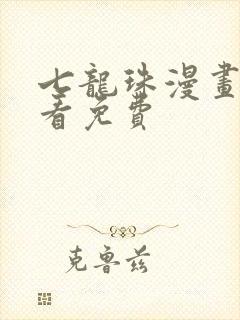 七龍珠漫畫
看免費
克魯茲